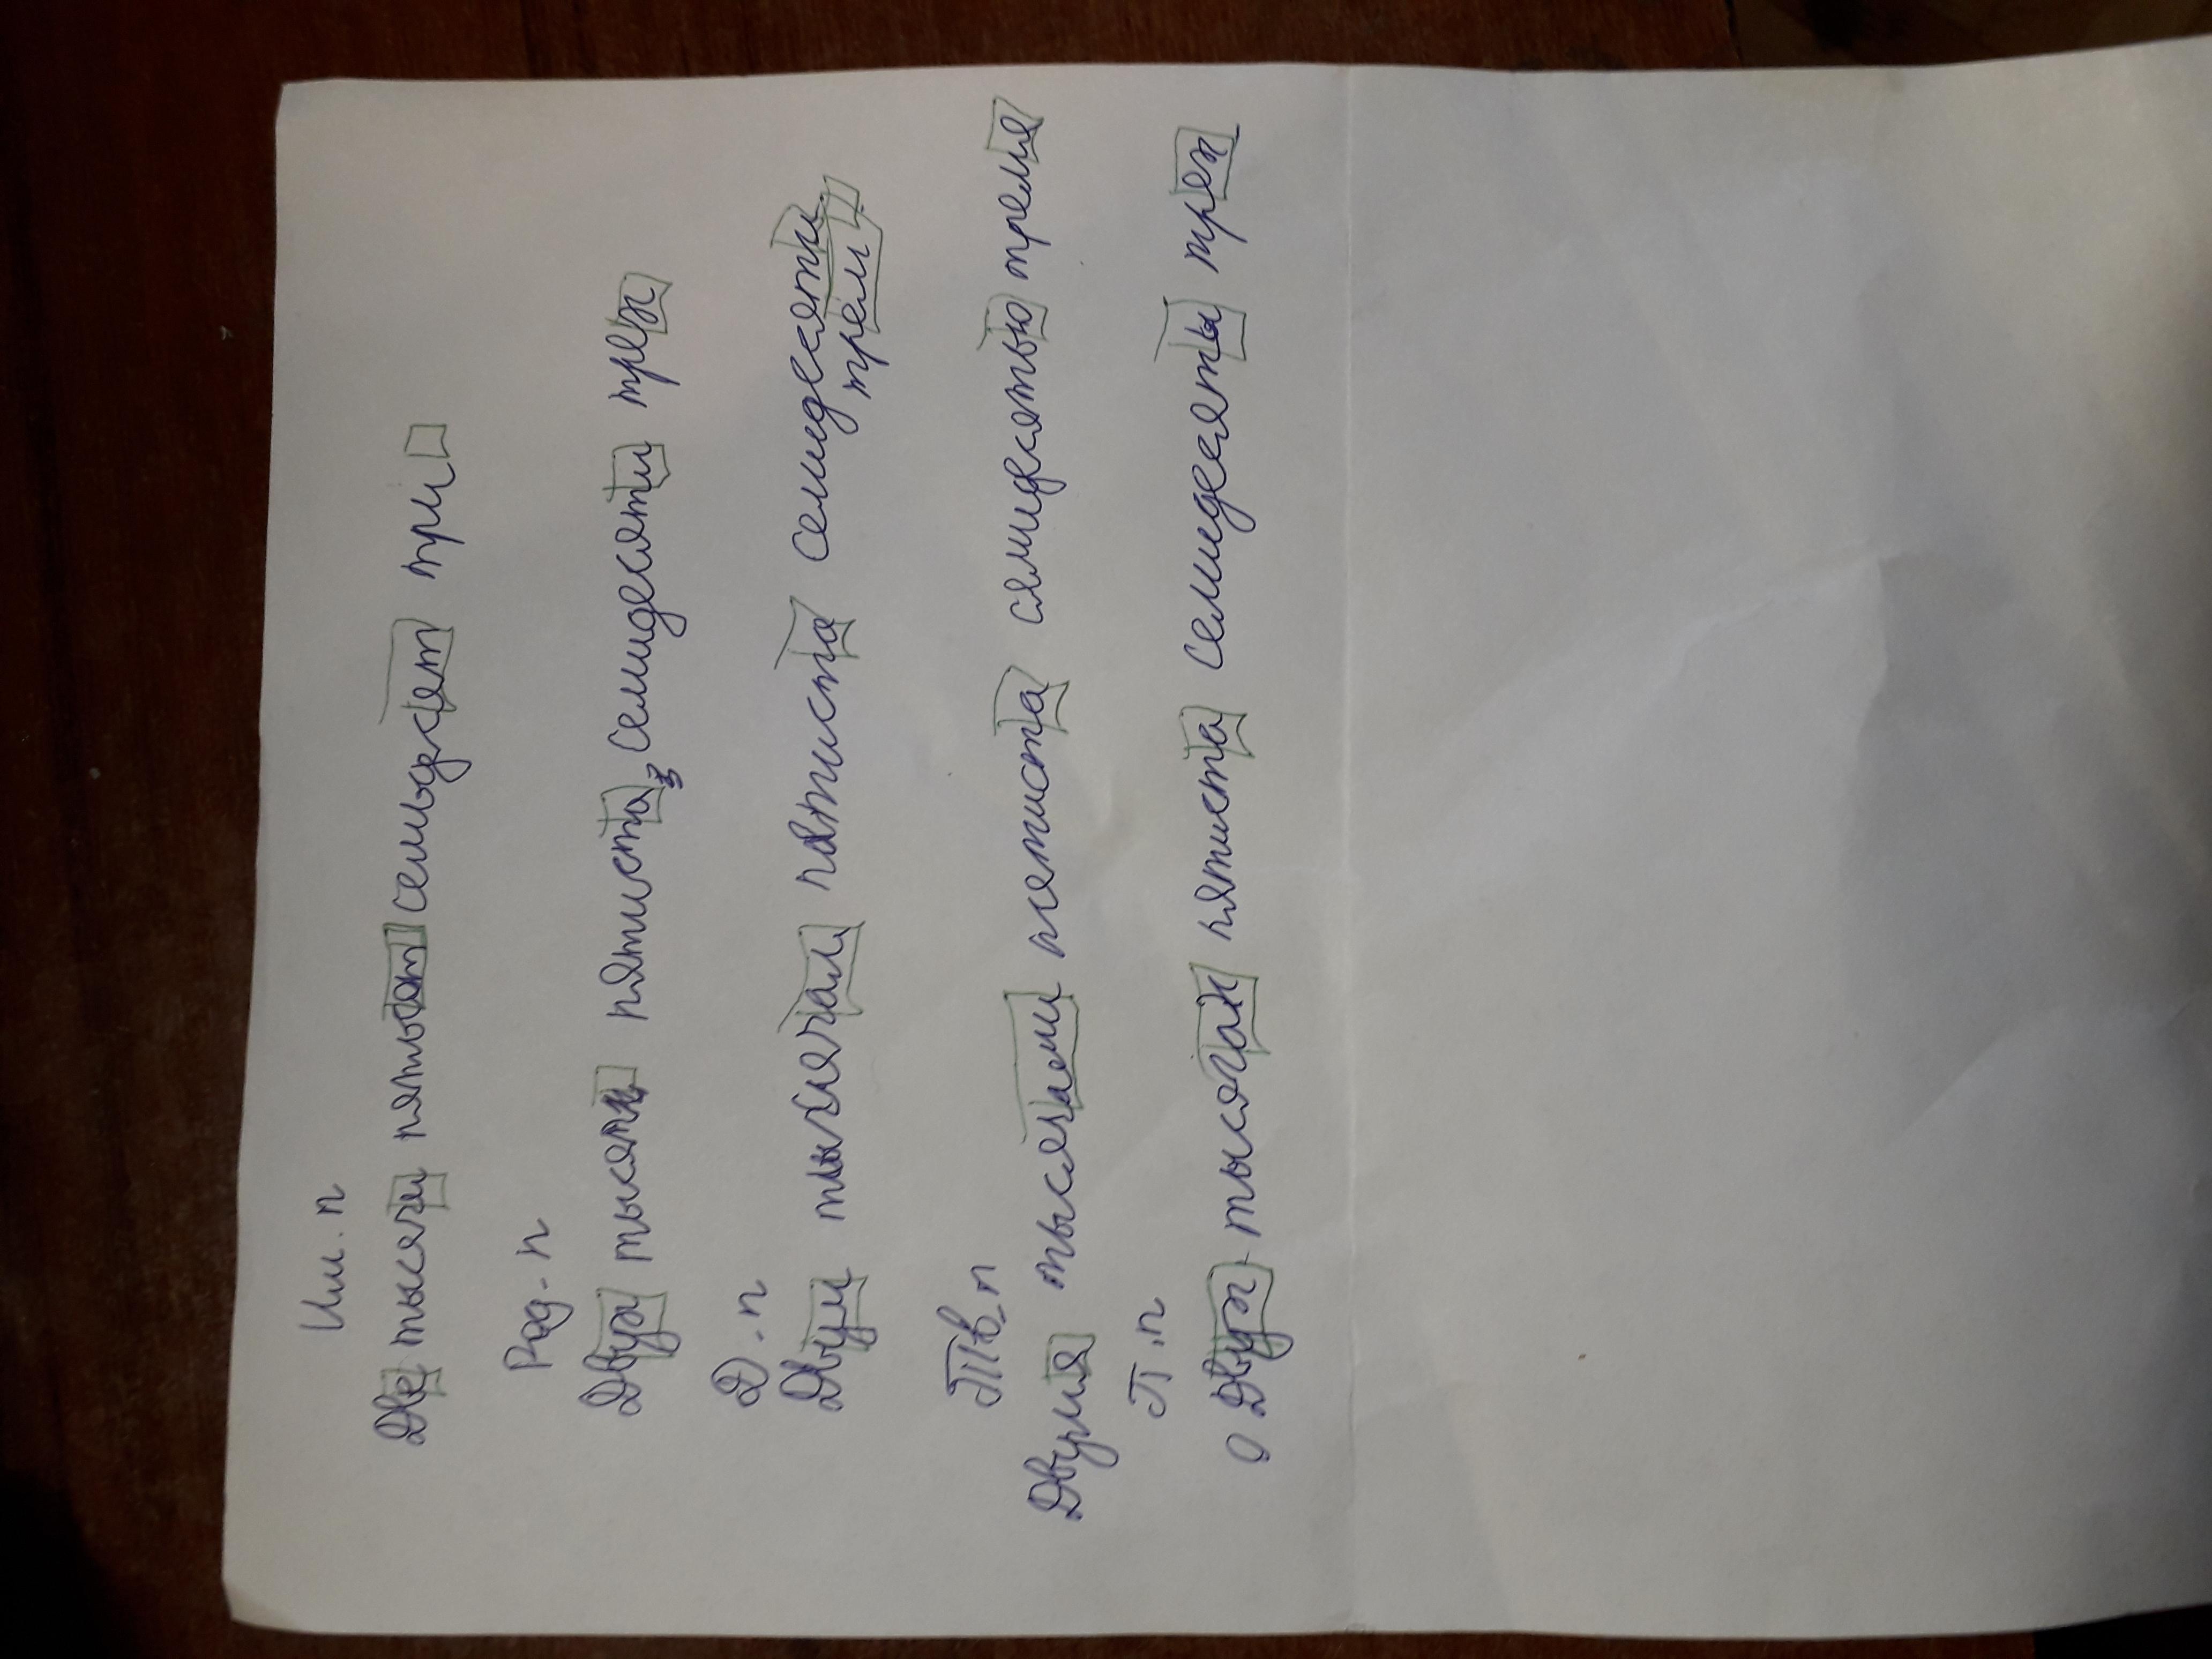 Им. п
Две тысячи пятьсот семьдесят три
Род - п
Двух тысяч пятиста семидесяти трех
Д - п
Двум тысячам пятиста семидесяти
трем
Тв - п
Двумя тысячами пятиста семидесятью тремя
П. п
о Двух тысячах пятиста семидесяты трех